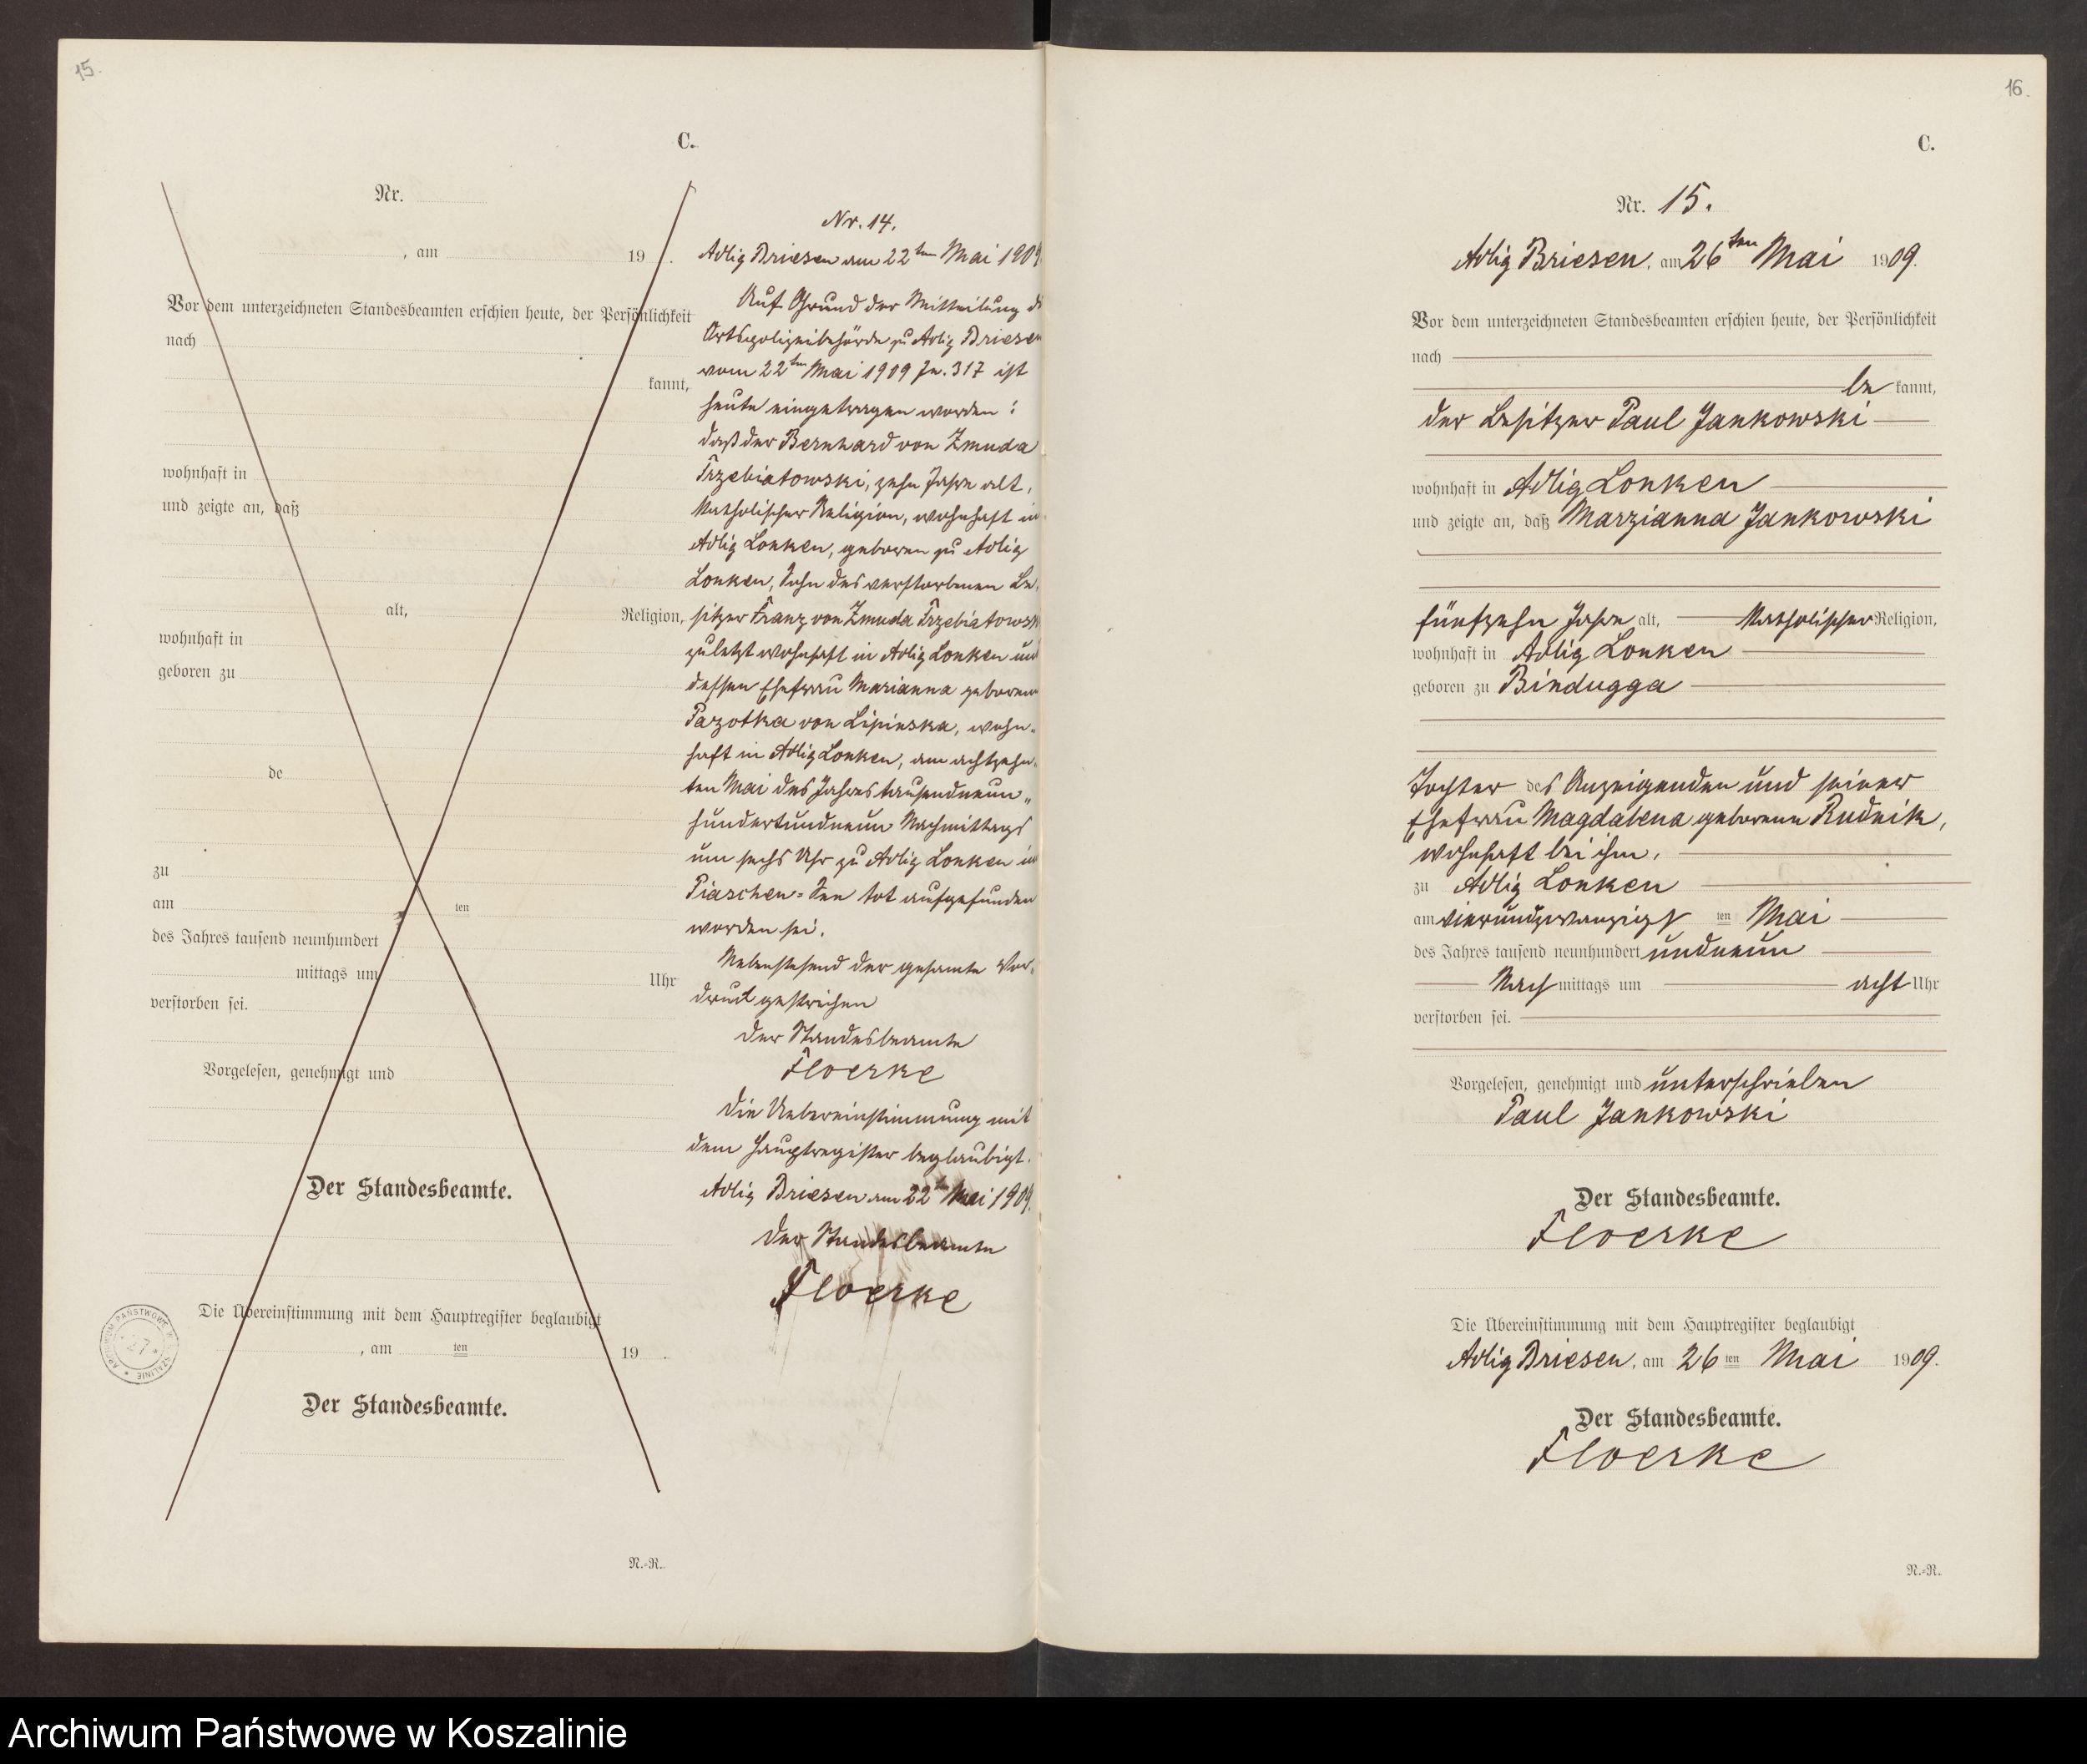 15.
C.
Nr.
, am 19 .
Vor dem unterzeichneten Standesbeamten erschien heute, der Persönlichkeit
nach
kannt,
wohnhaft in
und zeigte an, daß
alt, Religion,
wohnhaft in
geboren zu
de
zu
am ten
des Jahres tausend neunhundert
mittags um Uhr
verstorben sei.
Vorgelesen, genehmigt und
Der Standesbeamte.
Die Übereinstimmung mit dem Hauptregister beglaubigt
, am ten 19 .
Der Standesbeamte.
N.-R.
Nr. 14.
Adlig Briesen am 22ten Mai 1909
Auf Grund der Mitteilung d
Ortspolizeibehörde zu Adlig Briesen
vom 22ten Mai 1909 Jn. 317 ist
heute eingetragen worden:
daß der Bernhard von Zmuda
Trzebiatowski, zehn Jahre alt,
katholischer Religion, wohnhaft in
Adlig Lonken, geboren zu Adlig
Lonken, Sohn des verstorbenen Be-
sitzer Franz von Zmuda Trzebiatowsk
zuletzt wohnhaft in Adlig Lonken und
dessen Ehefrau Marianna geborene
Pazotka von Lipinska, wohn-
haft in Adlig Lonken, am achtzehn-
ten Mai des Jahres tausendneun-
hundertundneun Nachmittags
um sechs Uhr zu Adlig Lonken im
Piaschen-See tot aufgefunden
worden sei.
Nebenstehend der gesamte Vor-
druck gestrichen
Der Standesbeamte
Floerke
Die Uebereinstimmung mit
dem Hauptregister beglaubigt.
Adlig Briesen am 22ten Mai 1909.
Der Standesbeamte
Floerke
ARCHIWUM PAŃSTWOWE
27
16.
C.
Nr. 15.
Adlig Briesen, am 26ten Mai 1909.
Vor dem unterzeichneten Standesbeamten erschien heute, der Persönlichkeit
nach
be kannt,
der Besitzer Paul Jankowski
wohnhaft in Adlig Lonken
und zeigte an, daß Marzianna Jankowski
fünfzehn Jahre alt, katholischer Religion,
wohnhaft in Adlig Lonken
geboren zu Bindugga
Tochter des Anzeigenden und seiner
Ehefrau Magdalena geborene Rudnik,
wohnhaft bei ihm,
zu Adlig Lonken
am vierundzwanzigsten Mai
des Jahres tausend neunhundert undneun
Nach mittags um acht Uhr
verstorben sei.
Vorgelesen, genehmigt und unterschrieben
Paul Jankowski
Der Standesbeamte.
Floerke
Die Übereinstimmung mit dem Hauptregister beglaubigt
Adlig Briesen, am 26 ten Mai 1909.
Der Standesbeamte.
Floerke
N.-R.
Archiwum Państwowe w Koszalinie